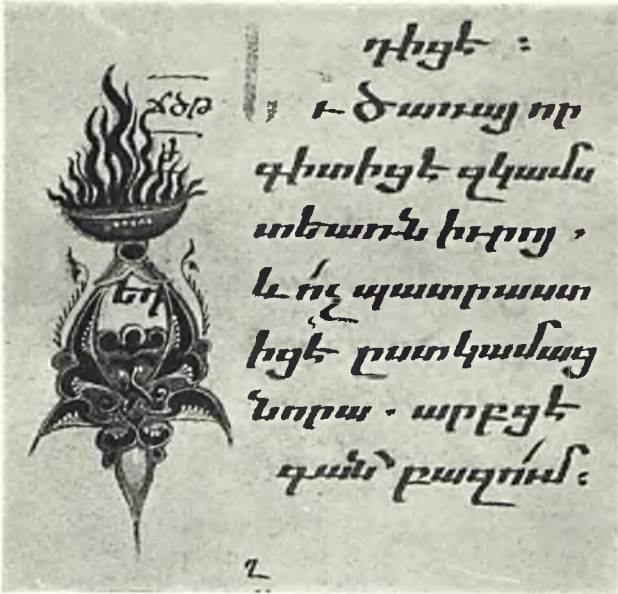 դիցէ :
ճծթ
ւ Ծառայ որ
գիտիցէ զկամս
տեառն իւրոյ ․
և ո՛չ պատրաստ
իցէ ըստ կամաց
նորա ․ արբցէ
գան բազո՛ւմ :